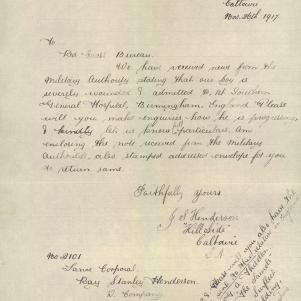 Caltowie
Nov. 26th 1917.
To
Red Cross Bureau.
We have received news from the
Military Authority stating that our boy is
severely wounded & admitted to 1st Southern
General Hospital, Birmingham, England. Please
will you make enquiries how he is progressing
& kindly let us know full particulars. Am
enclosing the note received from the Military
Authorities, also stamped addressed envelope for you
to return same.
Faithfully yours
J S Henderson
"Hillside"
Caltowie
S.A
No. 2101
Lance Corporal
Ray Stanley Henderson
D. Company
Please will you also have the